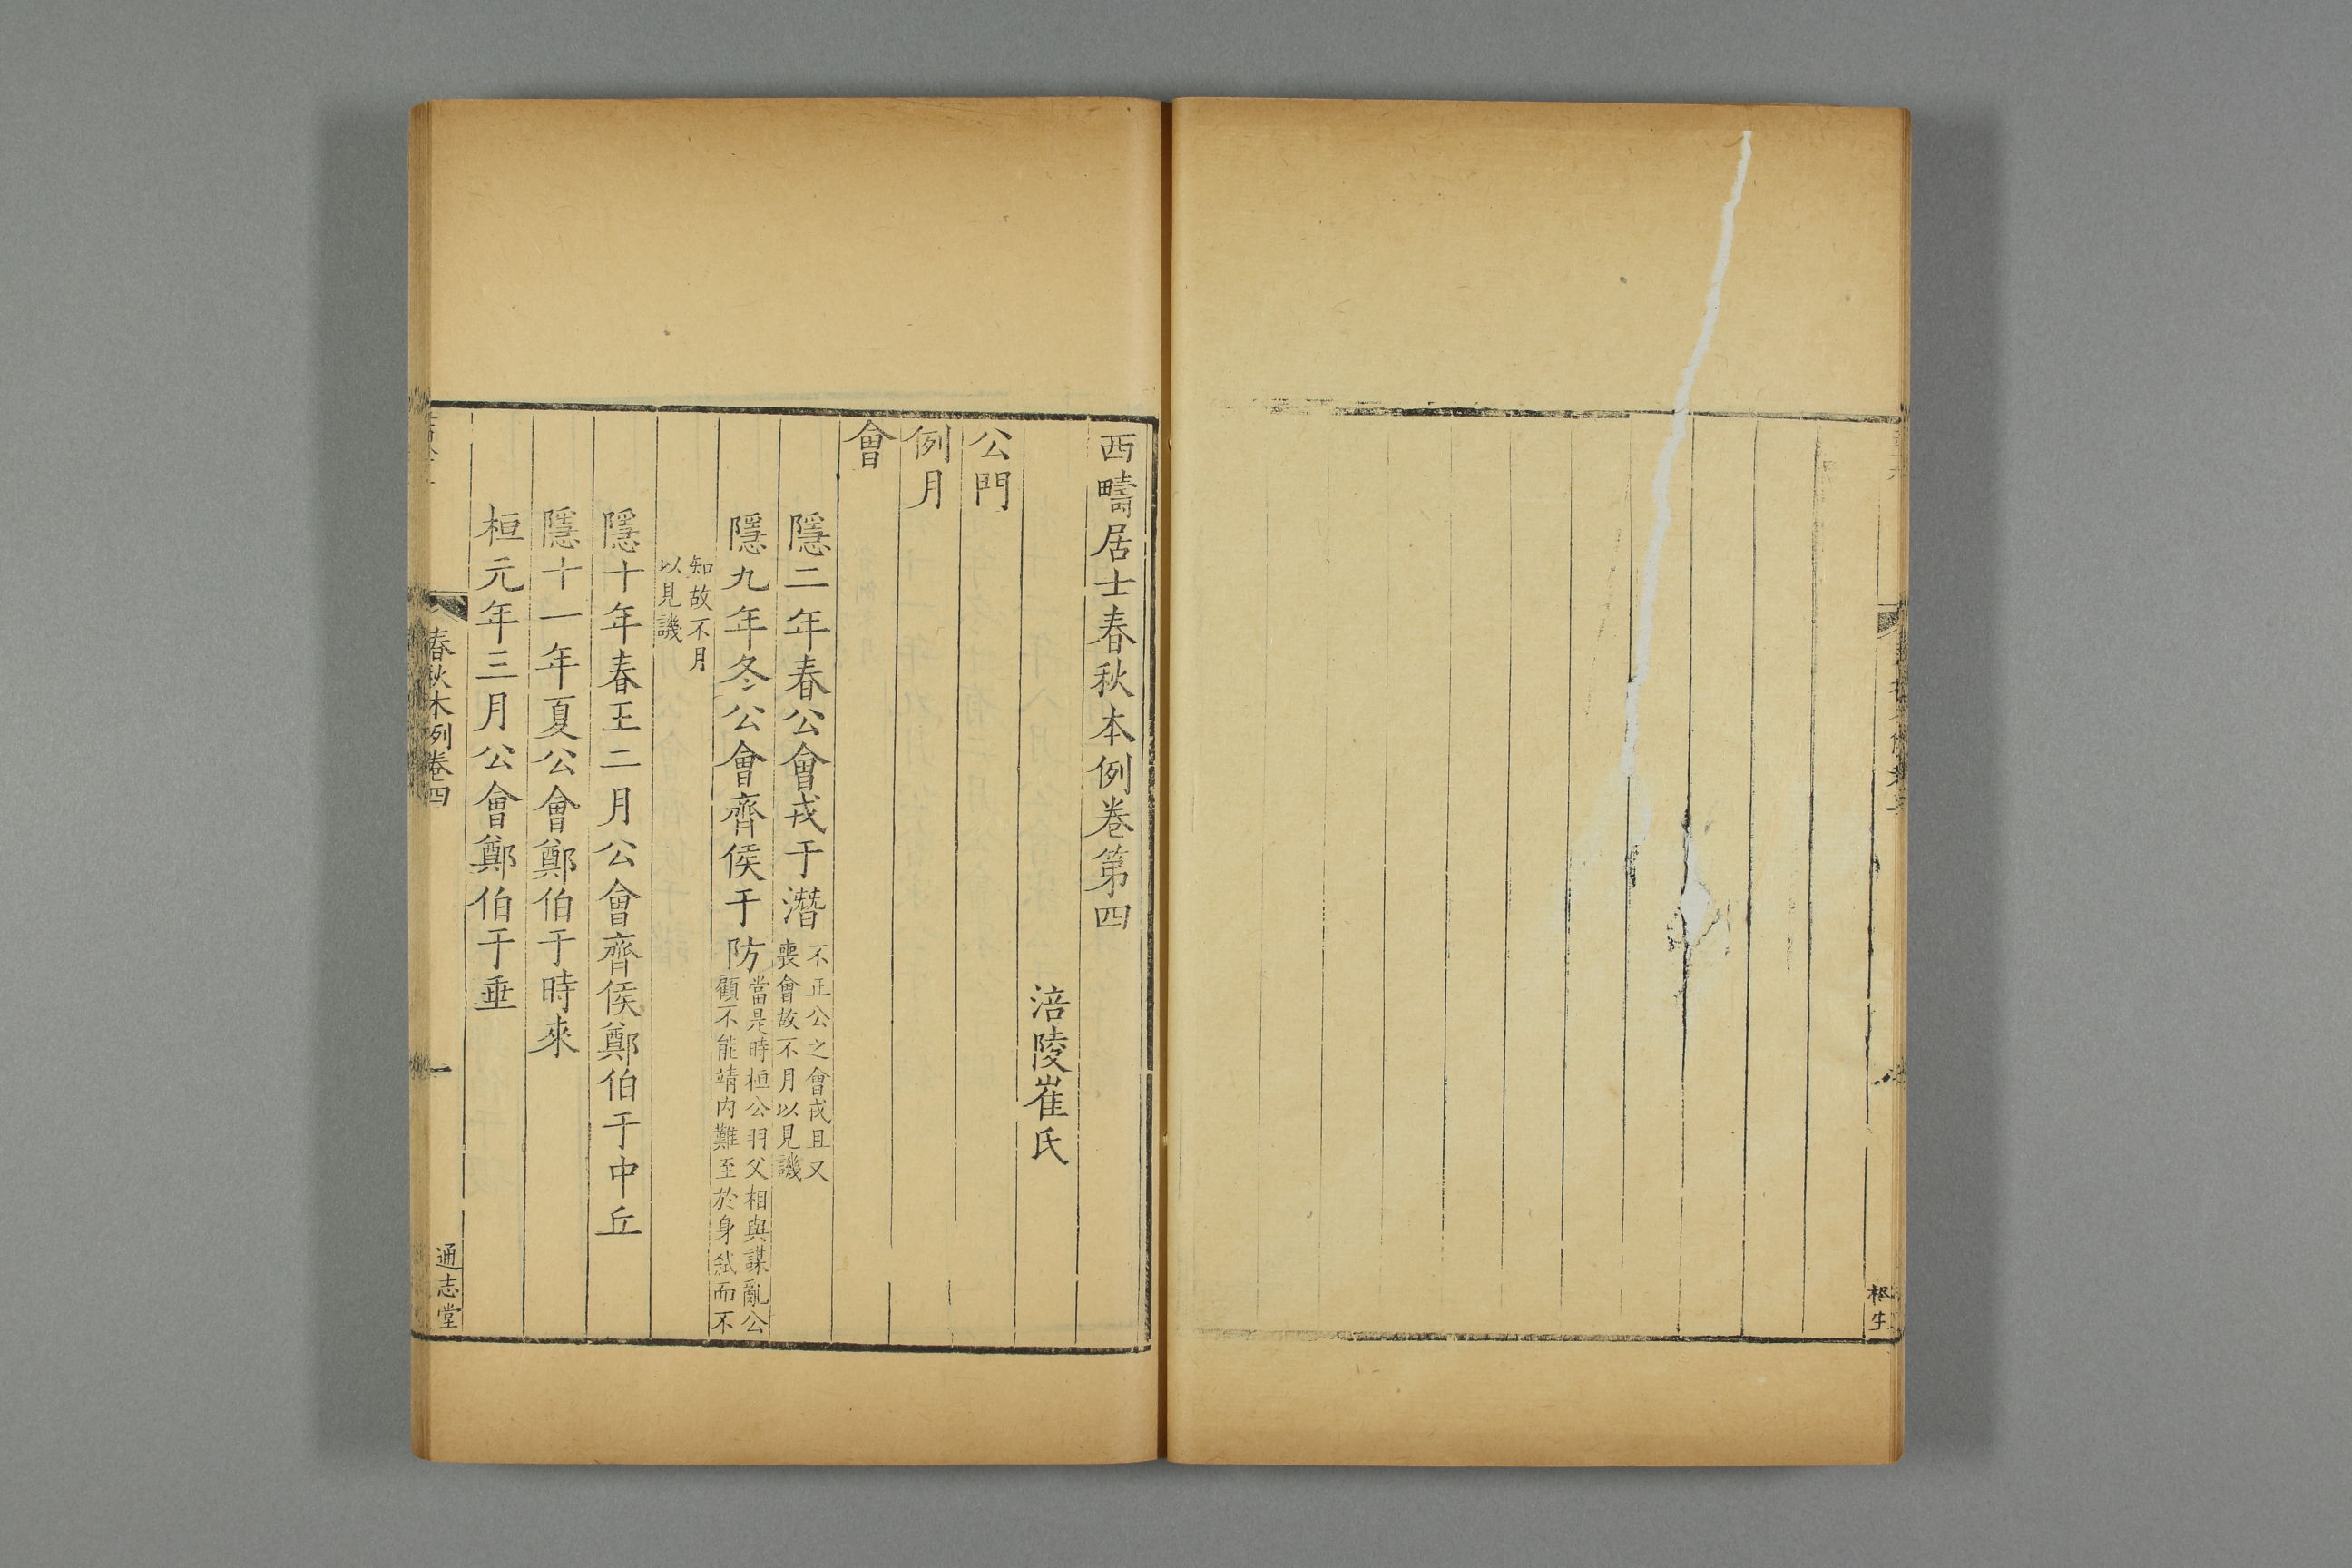 西疇居士春秋本例卷第四
涪陵崔氏
公門
例月
會
隱二年春公會戎于潛不正公之會戎且又
喪會故不月以見譏
隱九年冬公會齊侯于防當是時桓公羽父相與謀亂公
顧不能靖内難至於身弑而不
知故不月
以見譏
隱十年春王二月公會齊侯鄭伯于中丘
隱十一年夏公會鄭伯于時來
桓元年三月公會鄭伯于垂
春秋本例卷四
一
通志堂